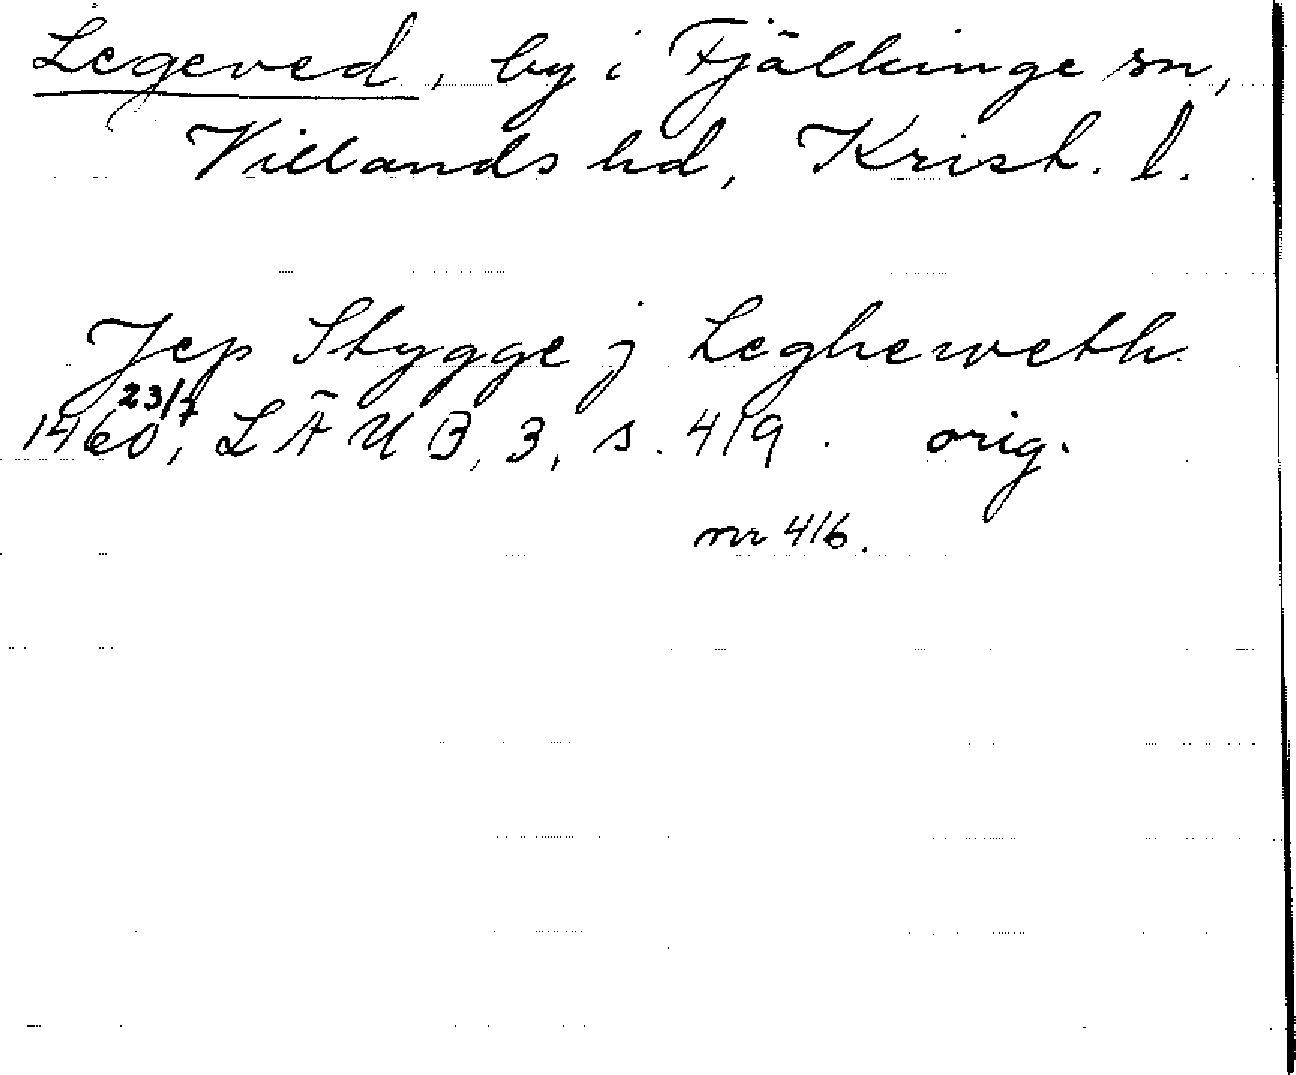 Legeved, by i Fjälkinge sn,
Villands hd, Krist. l.
Jep Stygge j Legheweth
1460 23/7, L Ä U B, 3, s. 419. orig.
nr 416.